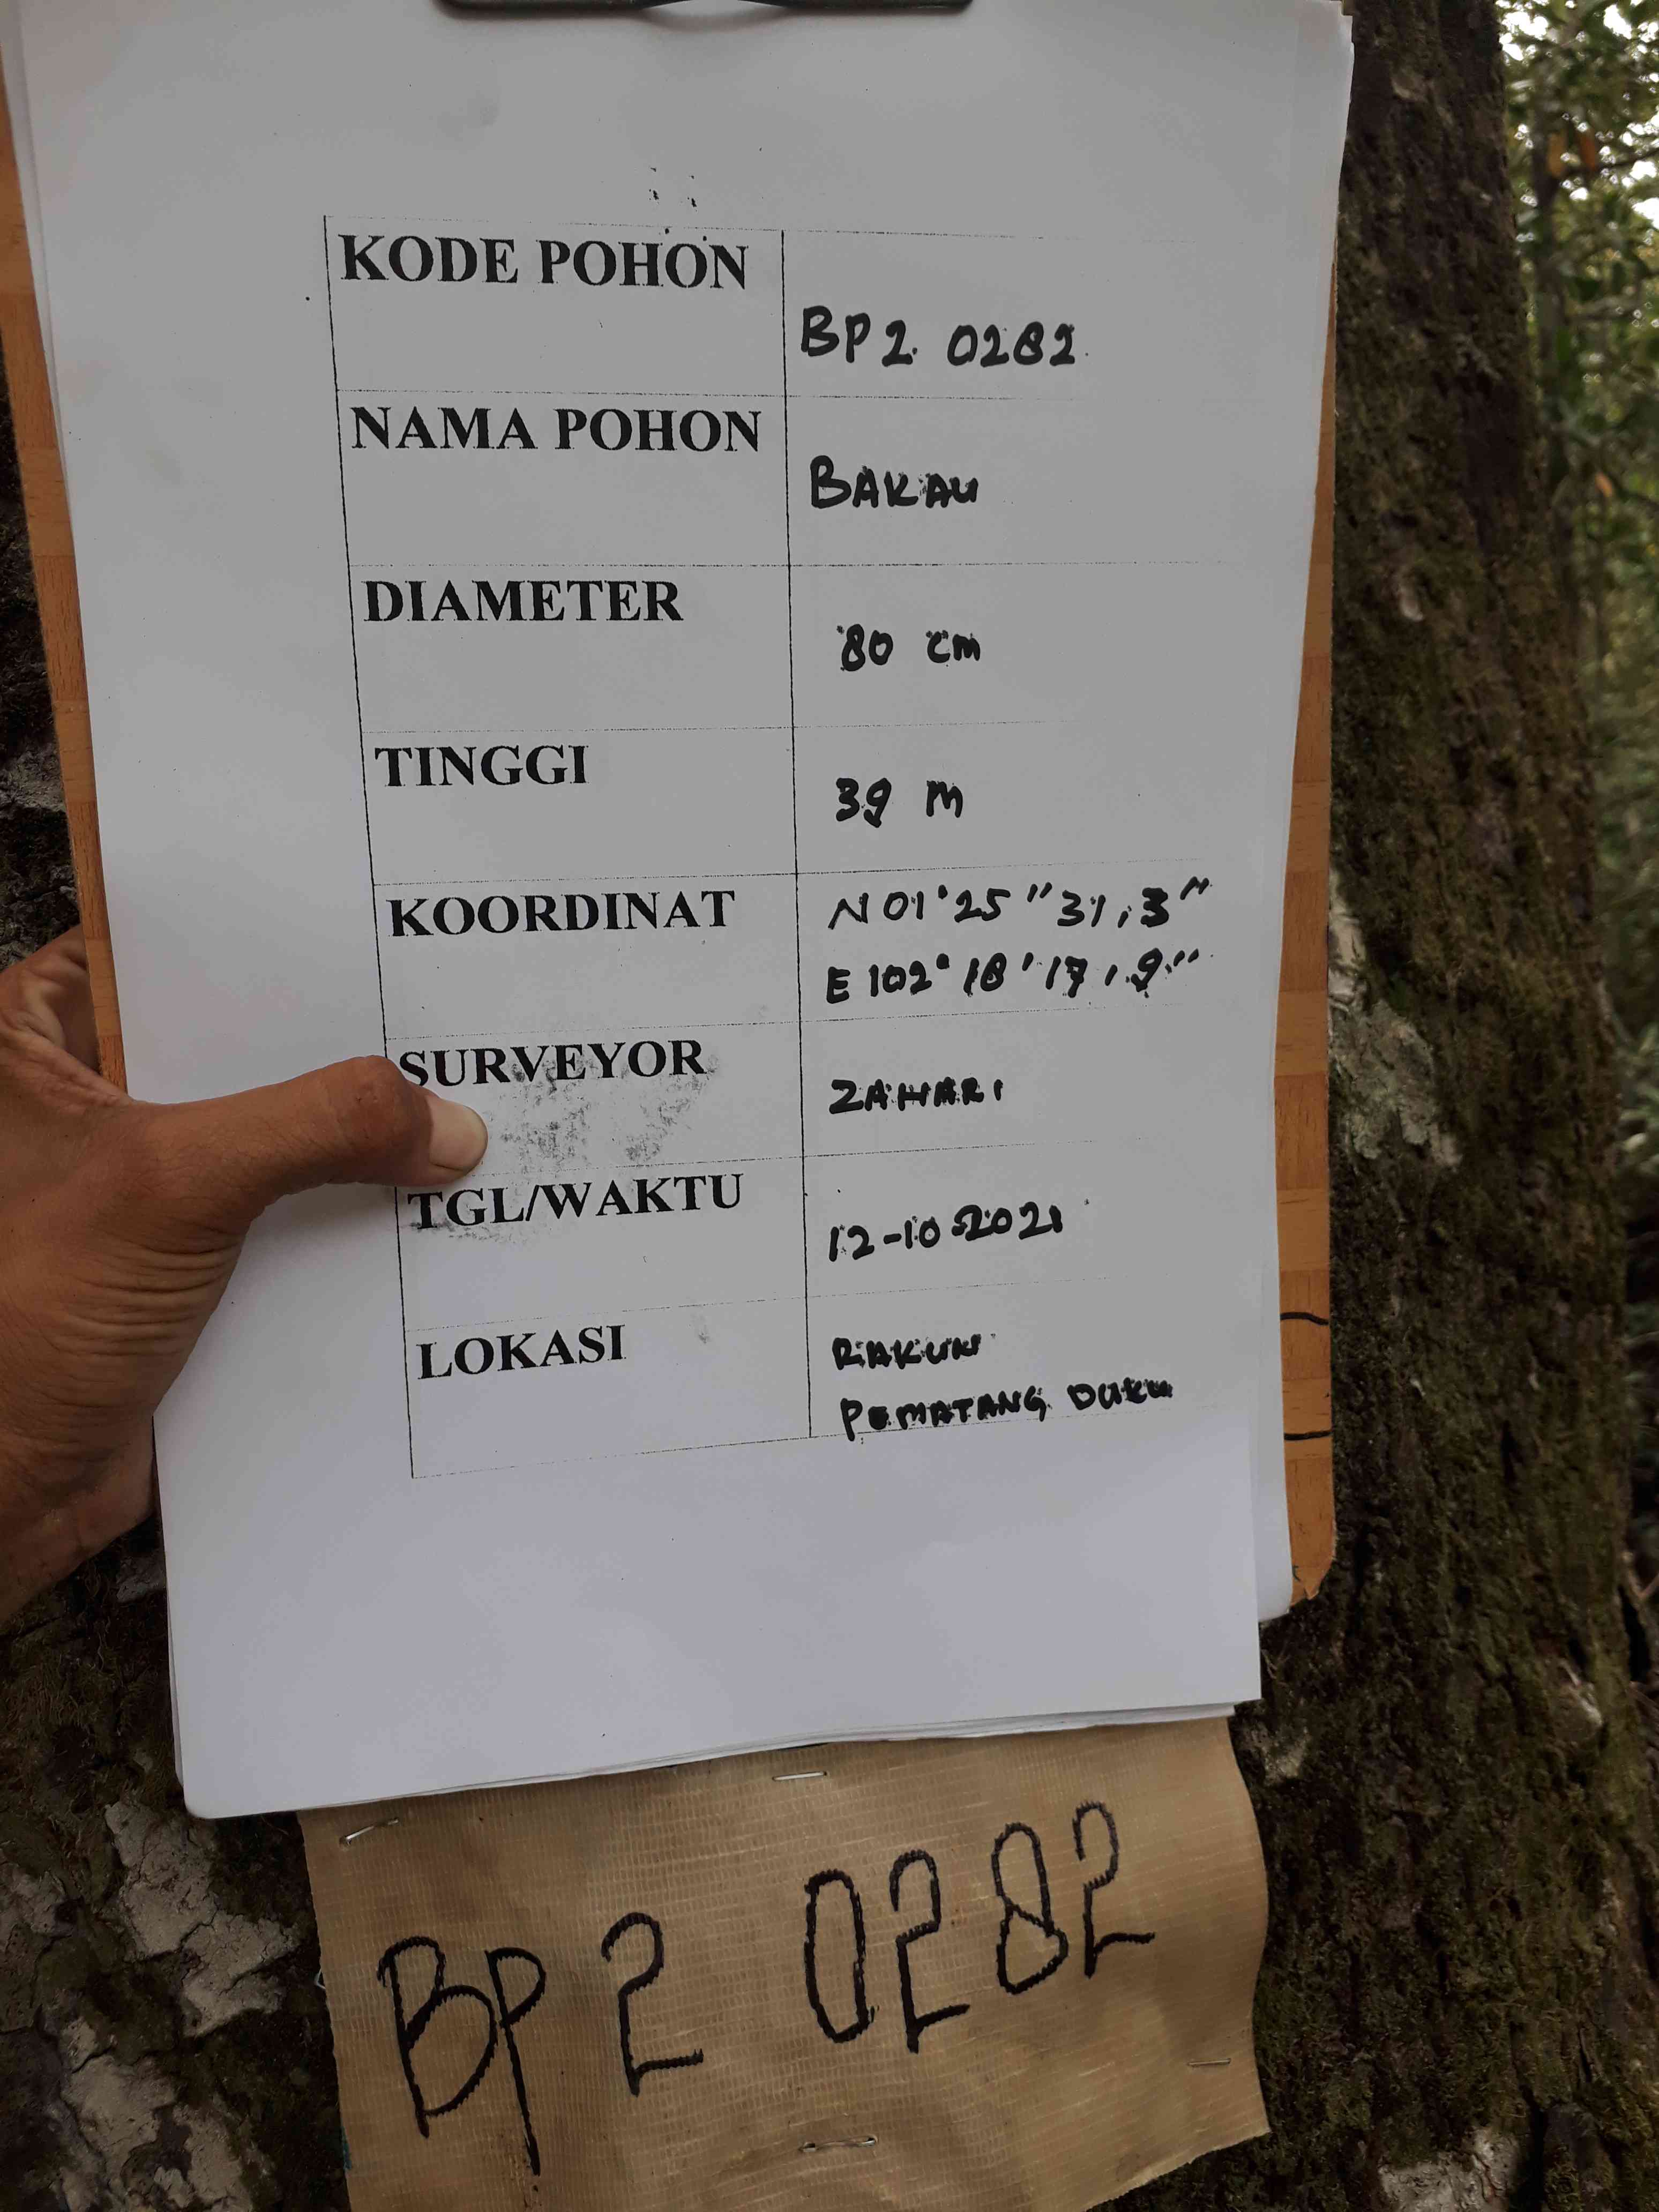 KODE POHON
BP2 0282
NAMA POHON
BAKAU
DIAMETER
80 cm
TINGGI
39 m
KOORDINAT
N 01°25"31,3"
E 102°18'17,9"
SURVEYOR
ZAHARI
TGL/WAKTU
12-10-2021
LOKASI
RAKUN
PEMATANG DUKU
BP2 0282